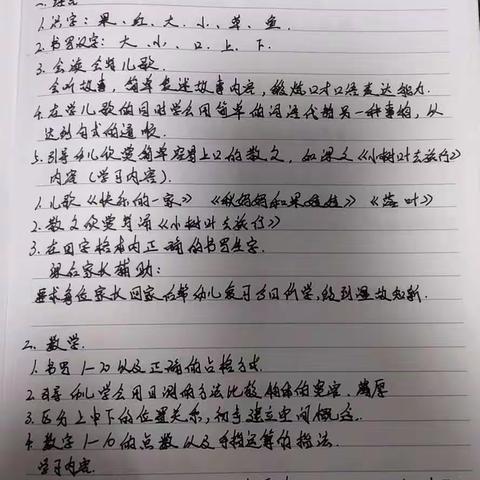 一、语言
1.识字：果、红、大、小、草、鱼.
2.书写汉字：大、小、口、上、下.
3.会读会背儿歌.
会听故事，简单复述故事内容，锻炼口才口语表达能力.
4.在学儿歌的同时学会用简单的词语代替另一种事物，从
达到句式的通顺.
5.引导幼儿欣赏简单容易上口的散文，如课文《小树叶去旅行》
内容（学习内容）.
1.儿歌《快乐的一家》《秋妈妈和果娃娃》《落叶》
2.散文欣赏背诵《小树叶去旅行》
3.在田字格本内正确的书写生字.
现在家长辅助：
要求每位家长回家后帮幼儿复习今日所学，做到温故知新.
二、数学.
1.书写1-20以及正确的占格方式.
2.引导幼儿学会用目测的方法比较物体的宽窄、薄厚
3.区分上中下的位置关系，初步建立空间概念.
4.数字1-10的点数以及手指运算的指法.
学习内容.